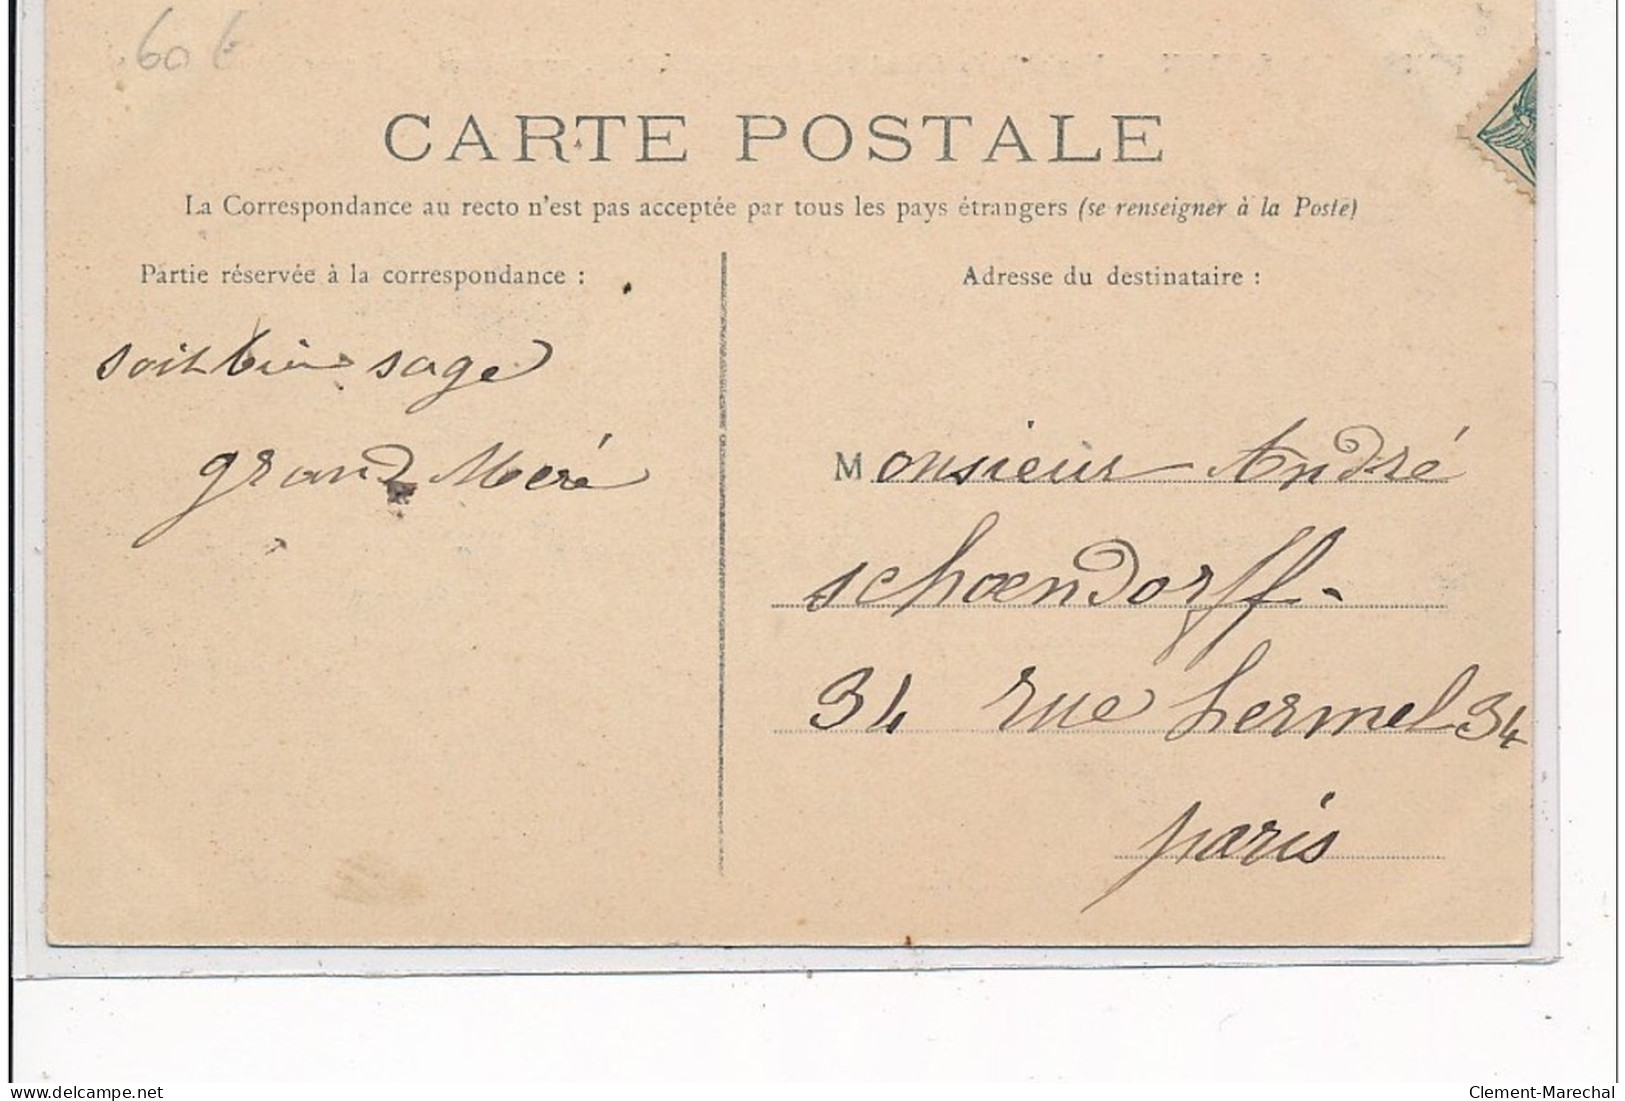 60 €
CARTE POSTALE
La Correspondance au recto n'est pas acceptée par tous les pays étrangers (se renseigner à la Poste)
Partie réservée à la correspondance :
soit bien sage
grand Meré
Adresse du destinataire :
Monsieur André
schoendorff.
34 rue hermel 34
paris
delcampe.net
Clement-Marechal